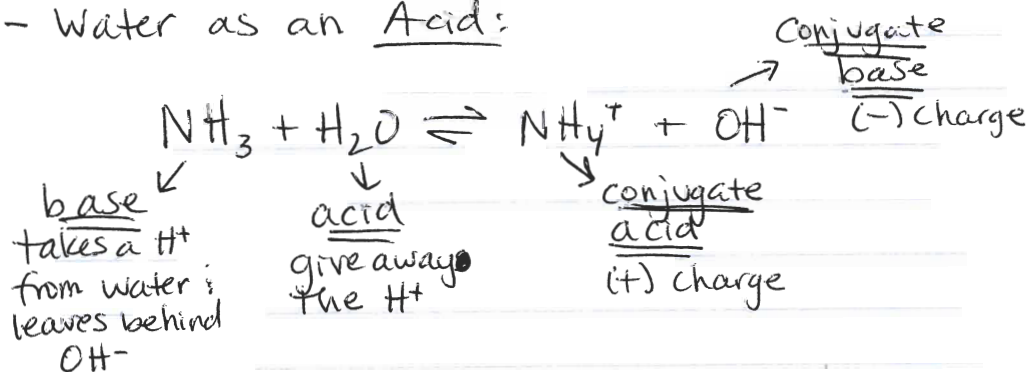 - Water as an Acid:
NH₃ + H₂O ⇌ NH₄⁺ + OH⁻
conjugate
base
(-) charge
base
takes a H⁺
from water ;
leaves behind
OH⁻
acid
give away
the H⁺
conjugate
acid
(+) charge